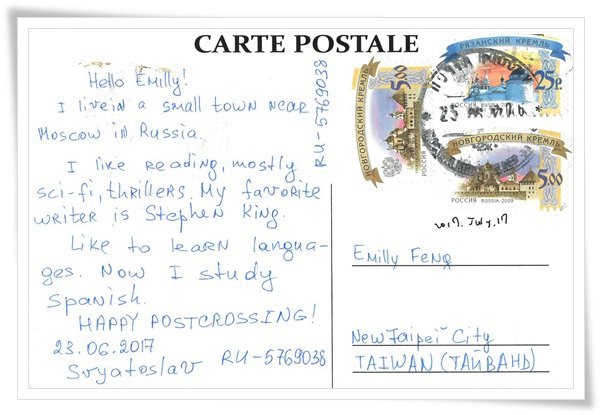 CARTE POSTALE
Hello Emilly!
I live in a small town near
Moscow in Russia.
I like reading, mostly
sci-fi, thrillers. My favorite
writer is Stephen King.
Like to learn langua-
ges. Now I study
Spanish.
HAPPY POSTCROSSING!
23.06.2017
Svyatoslav RU-5769038
RU-5769038
НОВГОРОДСКИЙ КРЕМЛЬ
5.00
РОССИЯ
РЯЗАНСКИЙ КРЕМЛЬ
25р.
РОССИЯ
НОВГОРОДСКИЙ КРЕМЛЬ
5.00
РОССИЯ RUSSIA·2009
2017. July. 17
Emilly Feng
New Taipei City
TAIWAN (ТАЙВАНЬ)